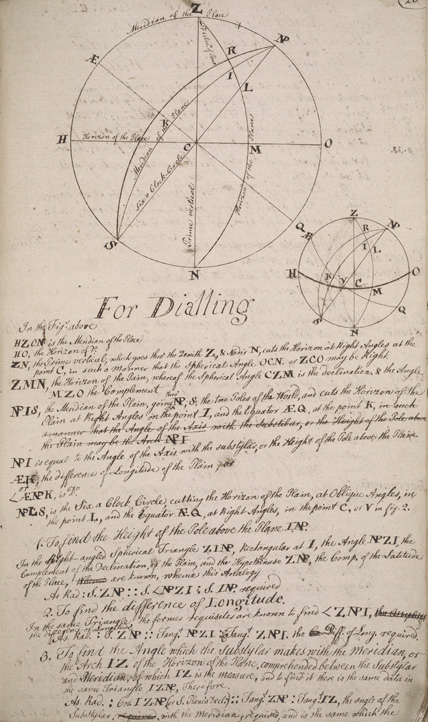 Z
Meridian of the Place
Declination
R
NP
Æ
I
L
K
Meridian of the Plane
H
Horizon of the Place
C
M
O
Six a Clock Circle
Prime vertical
Horizon of the Plane
S
N
Q
Z
R
NP
I
L
Æ
H
K
V
C
M
O
S
N
Q
For Dialling
In the Fig. above
HZON is the Meridian of the Place
HO, the Horizon of Do.
ZN, the Prime vertical, which goes thro the Zenith Z, & Nadir N, cuts the Horizon at Right Angles at the
point C, in such a Manner that the Spherical Angle OCN, or ZCO may be Right.
ZMN, the Horizon of the Plain, whereof the Spherical Angle CZM is the declination, & the Angle
MZO the Complement
NPIS, the Meridian of the Plain, going thro NP, S, the two Poles of the World, and cuts the Horizon of the
Plain at Right Angles in the point I, and the Equator ÆQ, at the point K, in such
a manner that the Angle of the Axis with the Substilar, or the Height of the Pole above
the Plain may be the Arch NPI
NPI is equal to the Angle of the Axis with the substylar, or the Height of the Pole above the Plain.
ÆK, the difference of Longitude of the Plain
∠ÆNPK, is Do.
NPLS, is the Six a Clock Circle cutting the Horizon of the Plain, at Oblique Angles, in
the point L, and the Equator ÆQ, at Right Angles, in the point C, or V in fig. 2.
1. To find the Height of the Pole above the Plane INP.
In the Right-angled Spherical Triangle ZINP, Rectangular at I, the Angle NPZI, the
Complement of the Declination of the Plain, and the Hypothenuse ZNP, the Comp. of the Latitude
of the Place, are known, whence this Analogy
As Rad : S. ZNP :: S. ∠NPZI : S. INP. required
2. To find the difference of Longitude.
In the same Triangle the former requisites are known to find ∠ZNPI,
Rad. : S. ZNP :: Tang. NPZI : Tang. ZNPI. the Diff. of Long. required.
3. To find the Angle which the Substylar makes with the Meridian, or
the Arch IZ of the Horizon of the Plane, comprehended between the Substylar
and Meridian, of which IZ is the measure, and to find it there is the same data in
the same Triangle IZNP, Therefore
As Rad. : Cos IZNP :: Tang. ZNP : Tang. IZ, the angle of the
Substylar, with the Meridian, required, and is the same which the